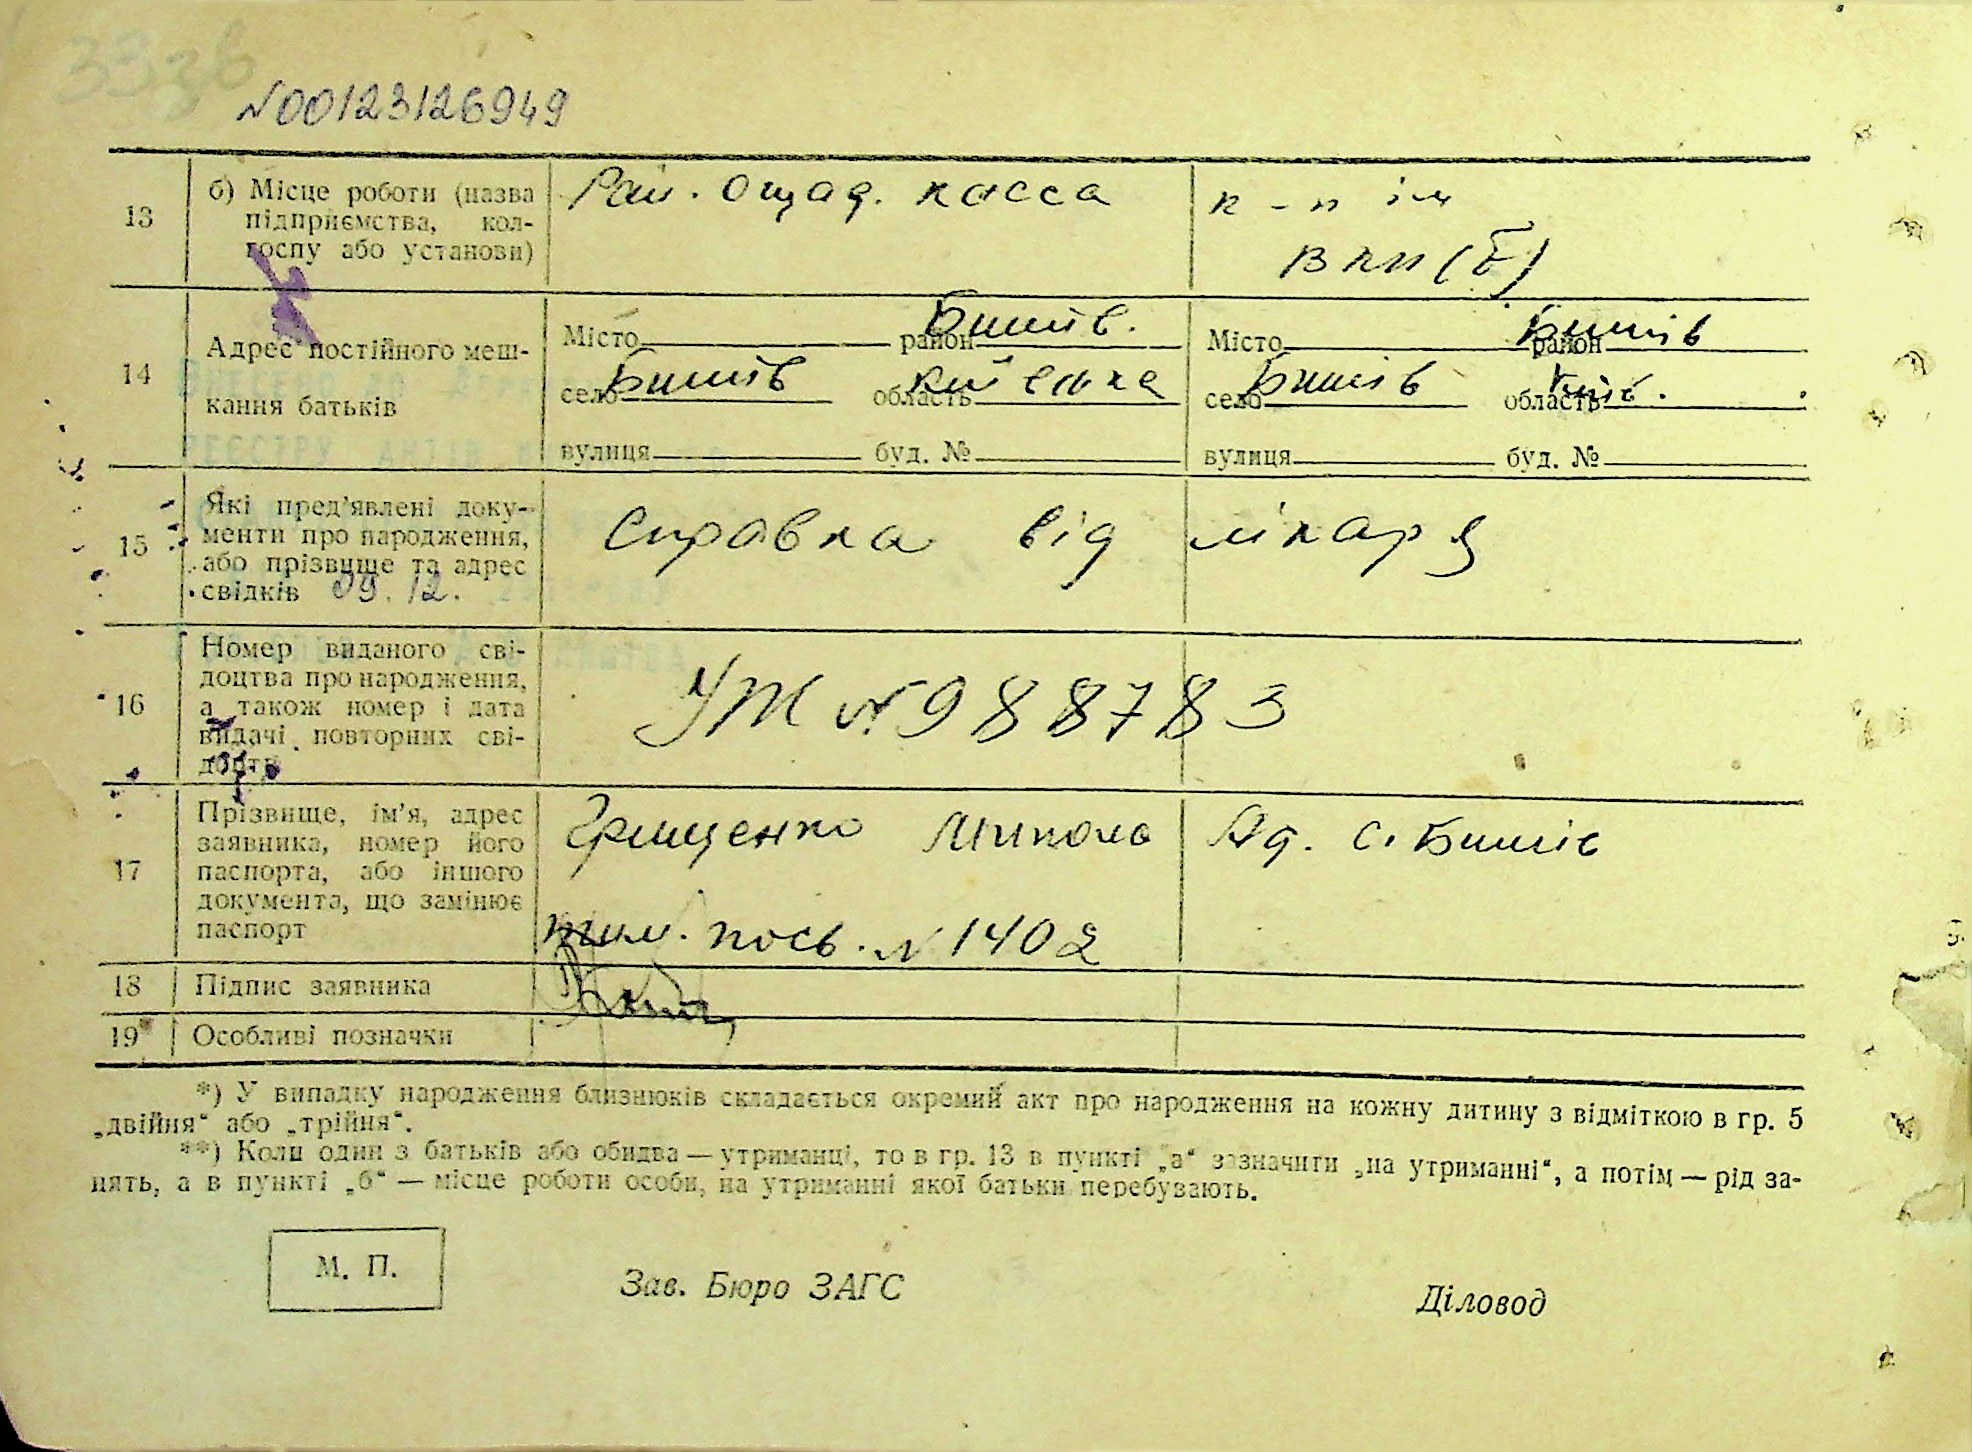 N00123126949
13 б) Місце роботи (назва підприємства, кол- Рай. Ощад. касса к-п ім
госпу або установи) ВКП(б)
14 Адрес постійного меш- Місто район Бишів. Місто район Бишів
кання батьків село Бишів область Київська село Бишів область Київ.
вулиця буд. № вулиця буд. №
15 Які пред'явлені доку-
менти про народження, Справка від лікаря
або прізвище та адрес
свідків 09.12.
Номер виданого сві-
доцтва про народження,
16 а також номер і дата УЖ N 988783
видачі повторних сві-
доцтв
Прізвище, ім'я, адрес Грищенко Микола Ад. с. Бишів
заявника, номер його
17 паспорта, або іншого
документа, що замінює
паспорт тим. пось. N 1402
18 Підпис заявника
19 Особливі позначки
*) У випадку народження близнюків складається окремий акт про народження на кожну дитину з відміткою в гр. 5
„двійня“ або „трійня“.
**) Коли один з батьків або обидва — утриманці, то в гр. 13 в пункті „а“ зазначити „на утриманні“, а потім — рід за-
нять, а в пункті „б“ — місце роботи особи, на утриманні якої батьки перебувають.
М. П. Зав. Бюро ЗАГС Діловод